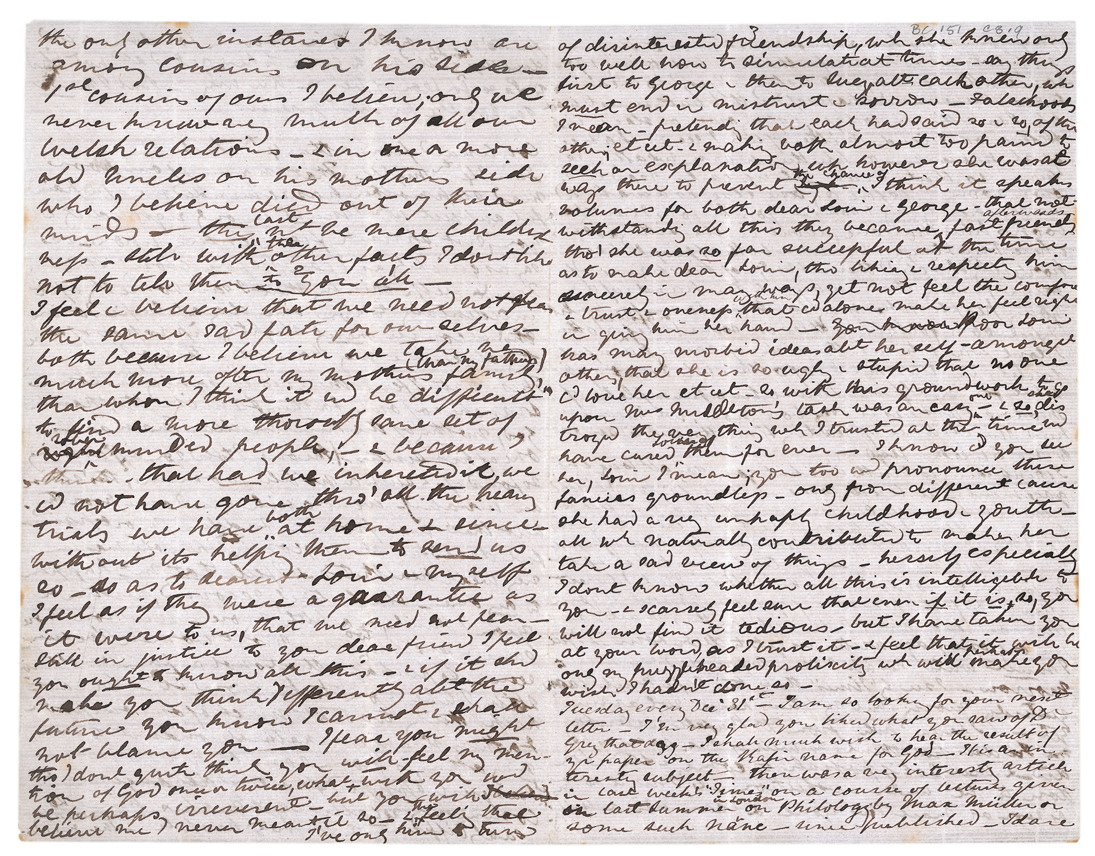 the only other instances I know are
among cousins on his side –
1st cousins of ours I believe, only we
never knew very much of all our
Welsh relations – & in one or more
old Uncles on his mothers side
who I believe died out of their
minds – the last may not be mere childish
ness – still with these other facts I dont like
not to tell them to you all –
I feel & believe that we need not fear
the same sad fate for ourselves –
both because I believe we take
much more after my mothers family (than my fathers)
than whom I think it wd be difficult
to find a more thoroughly sane set of
sober minded people, – & because,
– that had we inherited it, we
cd not have gone thro' all the heavy
trials we have both at home & since –
without its helping them to send us
so – so as to dearest Loui & myself
I feel as if they were a guarantee as
it were to us, that we need not fear –
still in justice to you dear friend I feel
you ought to know all this – & if it shd
make you think differently abt the
future you know I cannot & shall
not blame you — I fear you might
tho' I dont quite think you will feel my men-
tion of God once or twice, what with you wd
be perhaps irreverent – but you will
believe me I never meant it so – I feel that
I've only him to turn
3
BC 151 C8 19
of disinterested friendship, wh she knew only
too well how to simulate at times – say things
first to George & then to Suggate each other, wh
must end in mistrust & sorrow – Falsehoods
I mean – pretending that each had said so & so, of the
other, et cet. & making both almost too pained to
seek an explanation, wh however she was al
ways there to prevent the chance of – I think it speaks
volumes for both dear Loui & George – that not
withstanding all this they became fast friends afterwards
tho' she was so far successful at the time
as to make dear Loui, tho' liking & respecting him
sincerely in many ways, yet not feel the comfort
& trust & oneness with him that cd alone make her feel right
in giving him her hand – You know poor Loui
has many morbid ideas abt herself – amongst
others, that she is so ugly & stupid that no one
cd love her et cet – so with this groundwork to go
upon Mrs Middleton's task was an easy one – & so des
troyed the very thing wh I trusted at that time wd
have cured them for ever – I know if you
her, Loui I mean, you too wd pronounce these
fancies groundless – only from different cause
she had a very unhappy childhood & youth –
all wh naturally contributed to make her
take a sad view of things – herself especially
I dont know whether all this is intelligible to
you – & scarsely feel sure that even if it is so, you
will not find it tedious – but I have taken you
at your word, as I trust it – & feel that it will be
only my puzzleheaded prolixity wh will perhaps make you
wish I hadn't done so –
Tuesday eveg Dec 31st – I am so looking for your next
letter – I'm very glad you liked what you saw of Dr
Grey that day – I shall much wish to hear the result of
yr paper on the Kafir name for God – It is an in-
teresting subject – there was a very interesting article
in last weeks "Times" on a course of lectures given
in last Summer in London on Philology by Max Müller or
some such name – since published – I dare